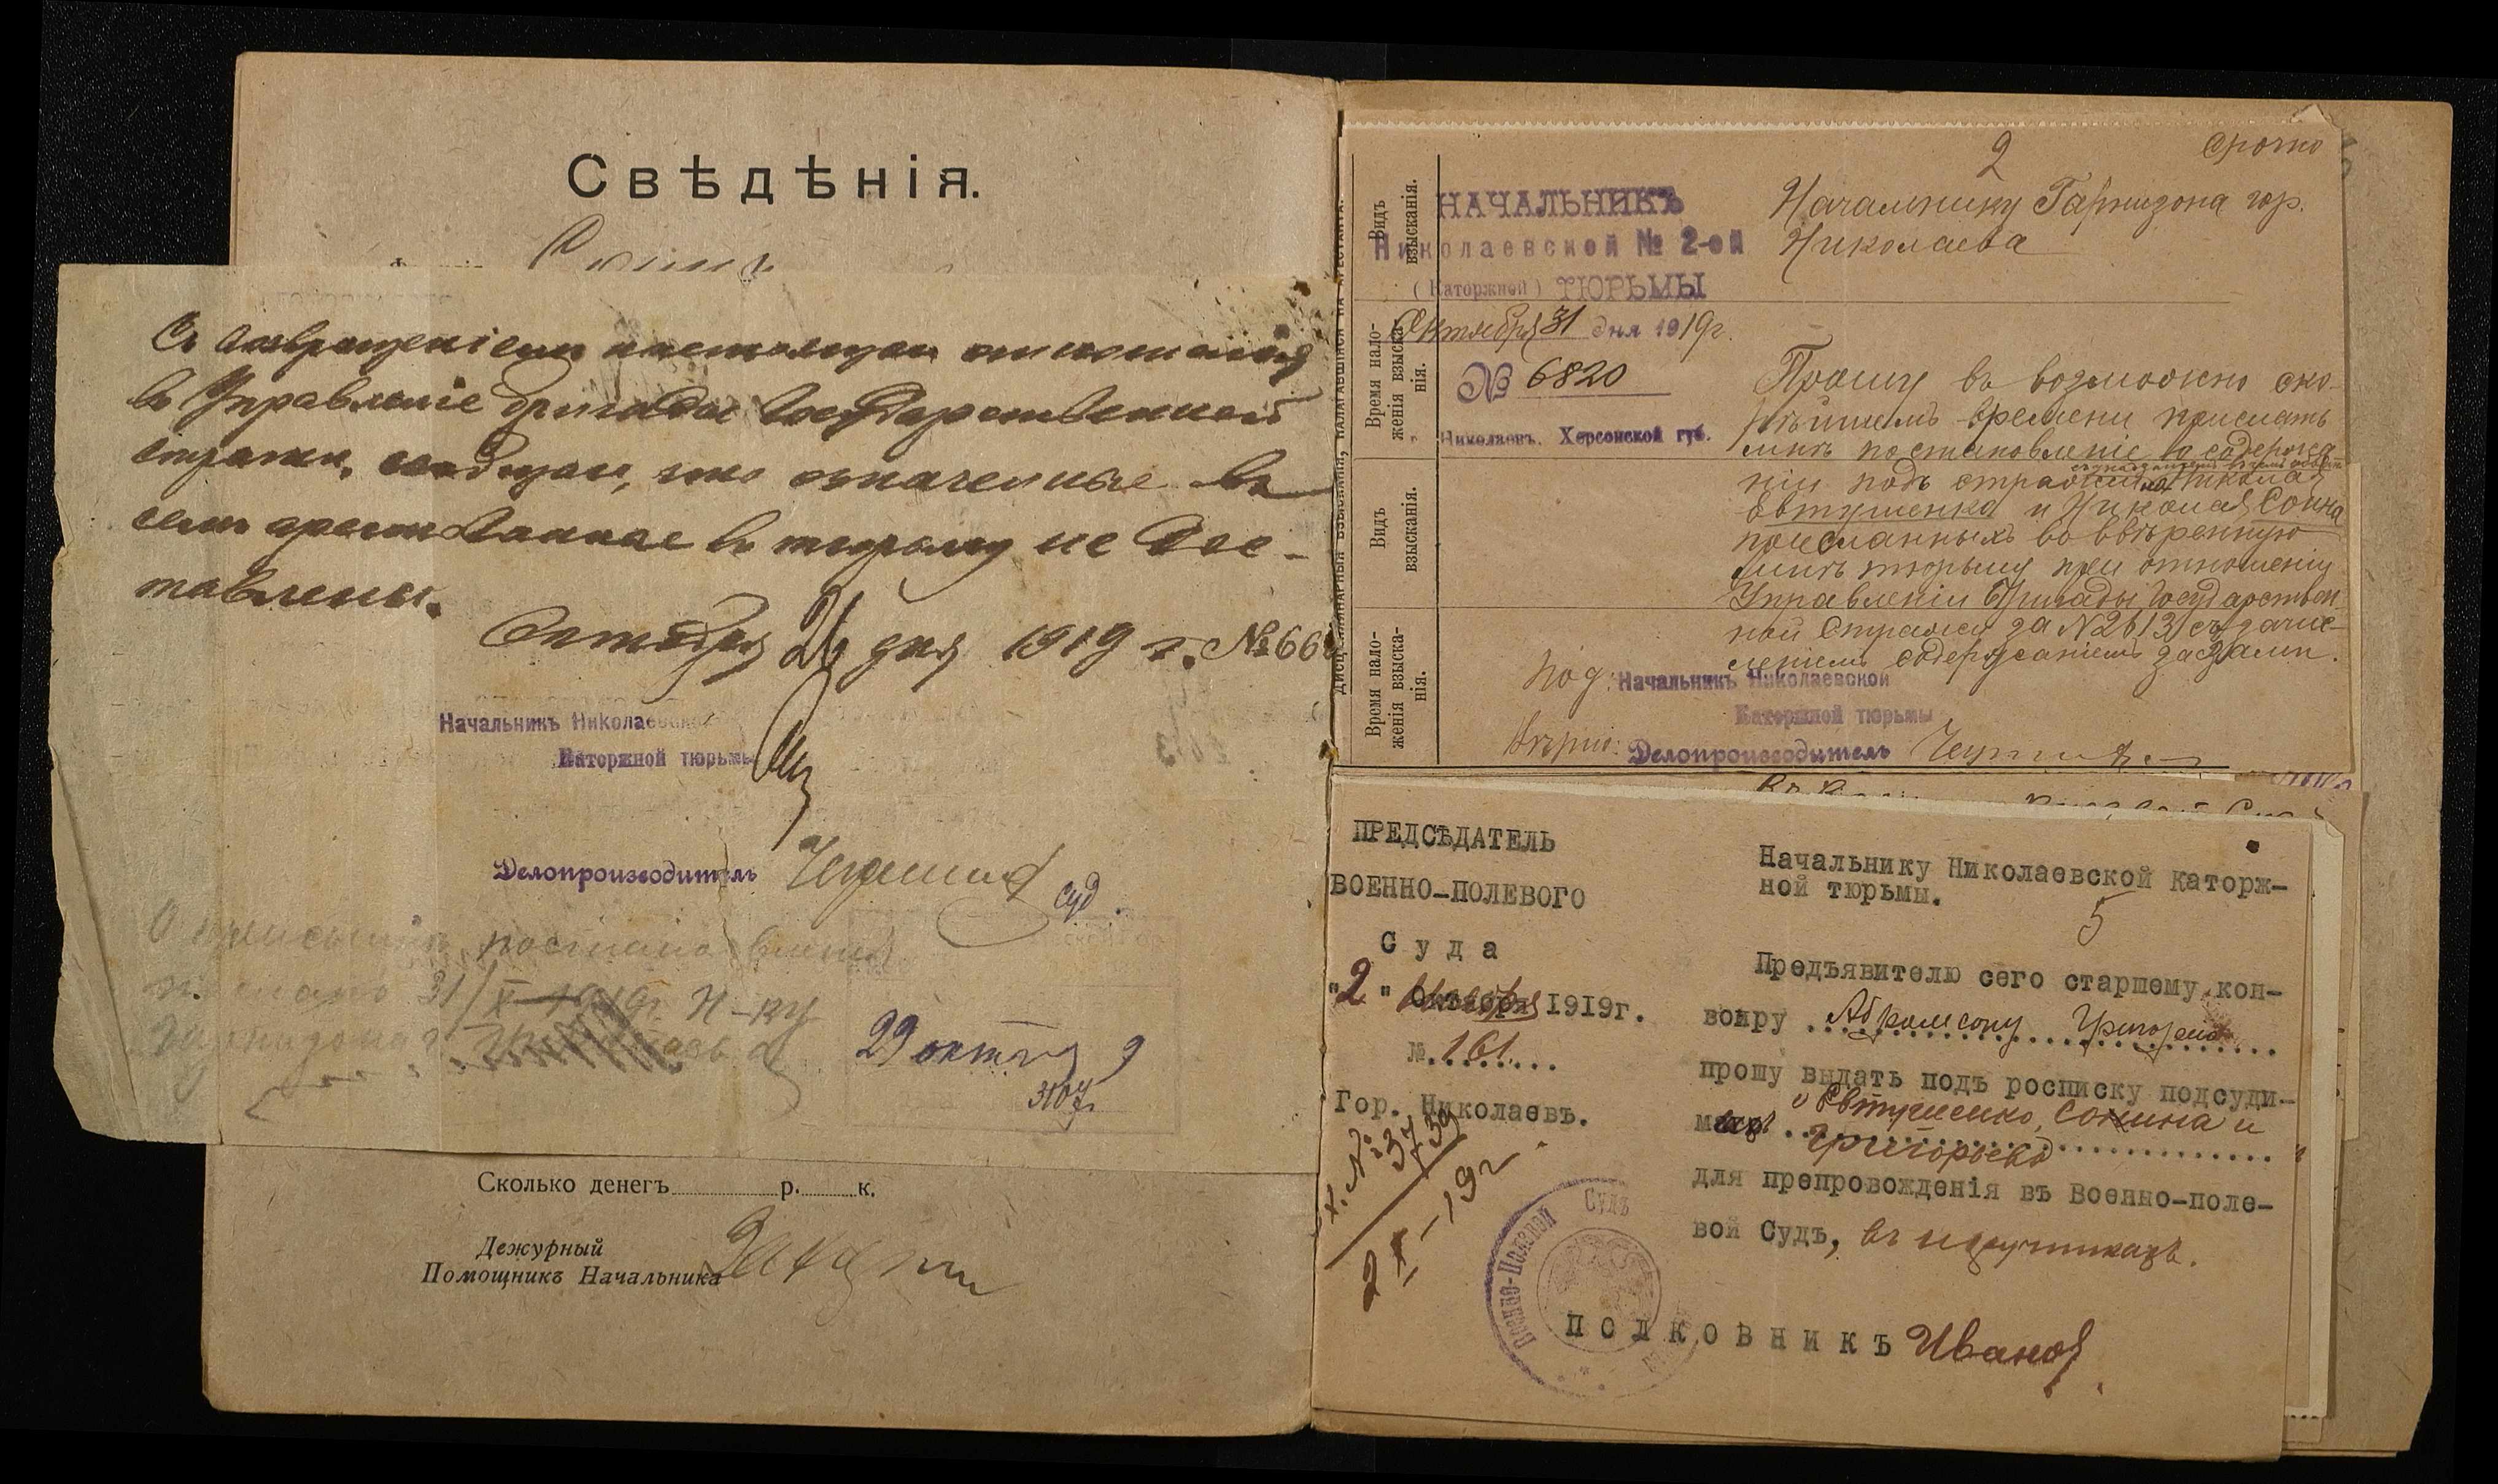 Свѣдѣнія.
Съ возвращеніемъ настоящаго отношенія
въ Управленіе бригады Государственной
стражи, сообщаю, что означенные въ
семъ арестованные въ тюрьму не дос-
тавлены.
Октября 26 дня 1919 г. №66
Начальникъ Николаевской
Каторжной тюрьмы
Делопроизводитель
суд.
О присылкѣ постановленія
31/X 1919г. Н-ку
Гарнизона г.
29 октяб 9
3107
Сколько денегъ р. к.
Дежурный
Помощникъ Начальника
ДИСЦИПЛИНАРНЫЯ ВЗЫСКАНІЯ, НАЛАГАВШІЯСЯ НА АРЕСТАНТА.
Видъ
взысканія.
Время нало-
женія взыска-
нія.
Видъ
взысканія.
Время нало-
женія взыска-
нія.
2
срочно
НАЧАЛЬНИКЪ
Николаевской № 2-ой
(Каторжной) ТЮРЬМЫ
Октября 31 дня 1919г.
№ 6820
Николаевъ, Херсонской губ.
Начальнику Гарнизона гор.
Николаева
Прошу въ возможно ско-
рѣйшемъ времени прислать
мнѣ постановленіе о содержа
ніи подъ стражей Николая
Евтушенко и Николая Сонна
присланныхъ во ввѣренную
мнѣ тюрьму при отношеніи
Управленія Бригады Государствен
ной Стражи за №2613 съ зачис-
леніемъ содержаніемъ за Вами.
Под: Начальникъ Николаевской
Каторжной тюрьмы
Вѣрно: Делопроизводитель
ПРЕДСѢДАТЕЛЬ
ВОЕННО-ПОЛЕВОГО
Суда
"2" Октября Ноября 1919г.
№.161....
Гор. Николаевъ.
х. № 3739
2 X-19г.
Начальнику Николаевской Каторж-
ной тюрьмы.
5
Предъявителю сего старшему кон-
воиру Абрамсону Григорію
прошу выдать подъ росписку подсуди-
мыхъ Евтушенко, Сонина и
Григорьева
для препровожденія въ Военно-поле-
вой Судъ, въ наручникахъ.
Военно-Полевой Судъ
Полковникъ Иванов